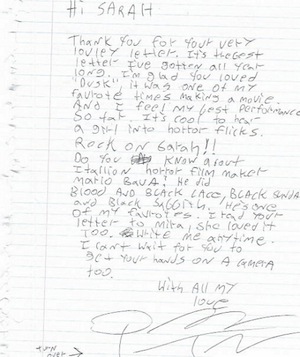 Hi SARAH
Thank you for your very
lovley letter. It's the Best
letter I've gotten all year
long. I'm glad you loved
"Dusk". it was one of my
favrote times making a movie.
And I feel my best performance
so far. It's cool to hear
a girl into horror flicks.
Rock on Sarah!!
Do you know about
Itallion horror film maker
Mario Bava! He did
Blood AND Black Lace, Black Sunda
and Black Sabbith. He's one
of my favrotes. I read your
letter to Mira, she loved it
too. Write me anytime.
I can't wait for you to
get your hands on A camera
too.
With All my
love
turn
over →